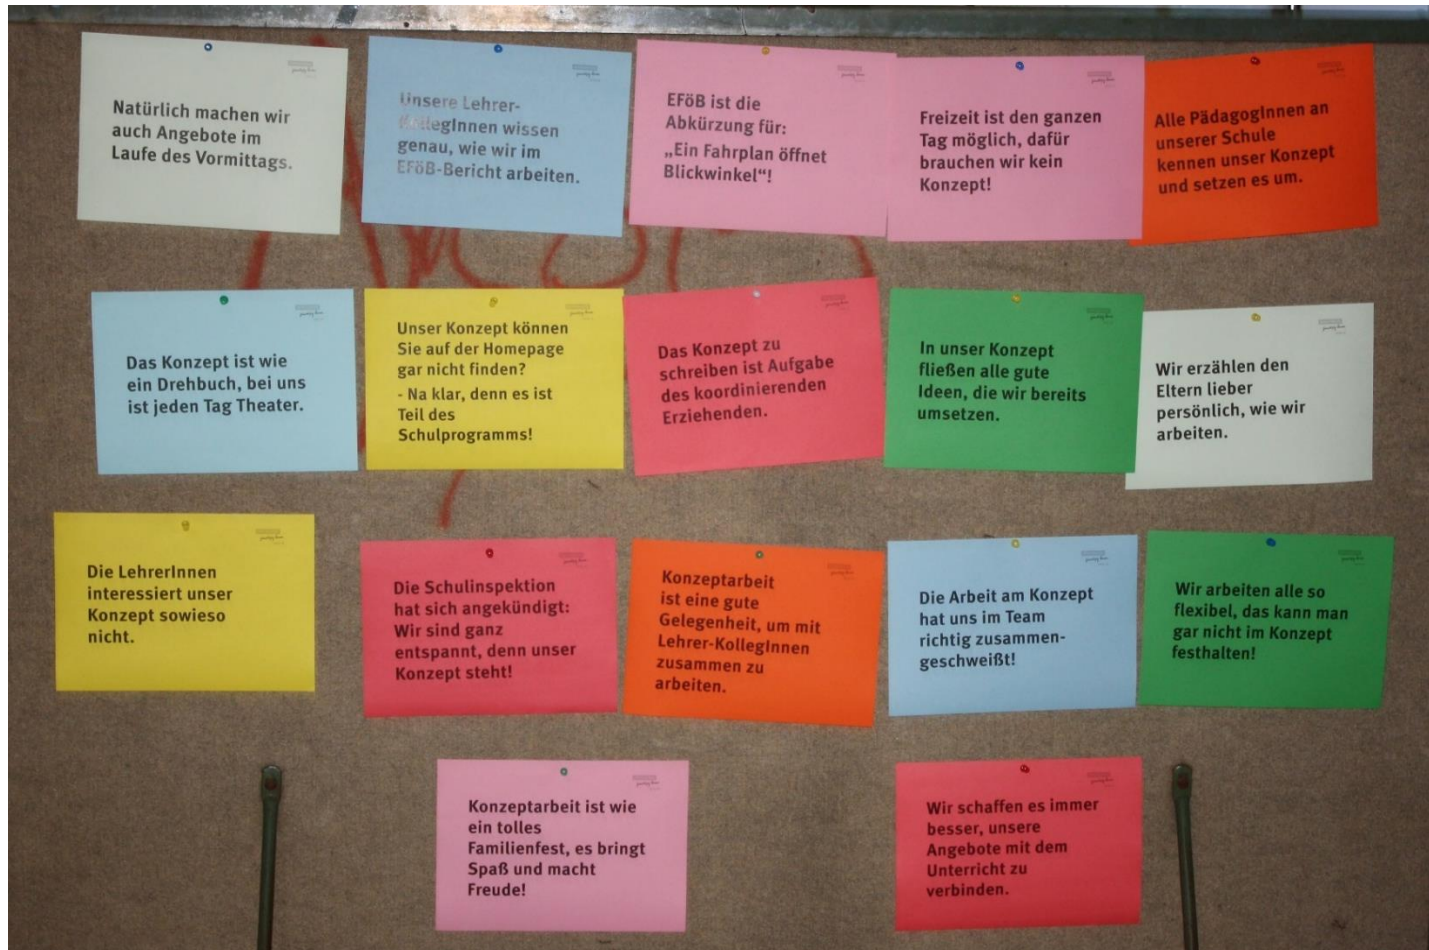 Natürlich machen wir
auch Angebote im
Laufe des Vormittags.
Unsere Lehrer-
KollegInnen wissen
genau, wie wir im
EFöB-Bericht arbeiten.
EFöB ist die
Abkürzung für:
„Ein Fahrplan öffnet
Blickwinkel“!
Freizeit ist den ganzen
Tag möglich, dafür
brauchen wir kein
Konzept!
Alle PädagogInnen an
unserer Schule
kennen unser Konzept
und setzen es um.
Das Konzept ist wie
ein Drehbuch, bei uns
ist jeden Tag Theater.
Unser Konzept können
Sie auf der Homepage
gar nicht finden?
- Na klar, denn es ist
Teil des
Schulprogramms!
Das Konzept zu
schreiben ist Aufgabe
des koordinierenden
Erziehenden.
In unser Konzept
fließen alle gute
Ideen, die wir bereits
umsetzen.
Wir erzählen den
Eltern lieber
persönlich, wie wir
arbeiten.
Die LehrerInnen
interessiert unser
Konzept sowieso
nicht.
Die Schulinspektion
hat sich angekündigt:
Wir sind ganz
entspannt, denn unser
Konzept steht!
Konzeptarbeit
ist eine gute
Gelegenheit, um mit
Lehrer-KollegInnen
zusammen zu
arbeiten.
Die Arbeit am Konzept
hat uns im Team
richtig zusammen-
geschweißt!
Wir arbeiten alle so
flexibel, das kann man
gar nicht im Konzept
festhalten!
Konzeptarbeit ist wie
ein tolles
Familienfest, es bringt
Spaß und macht
Freude!
Wir schaffen es immer
besser, unsere
Angebote mit dem
Unterricht zu
verbinden.